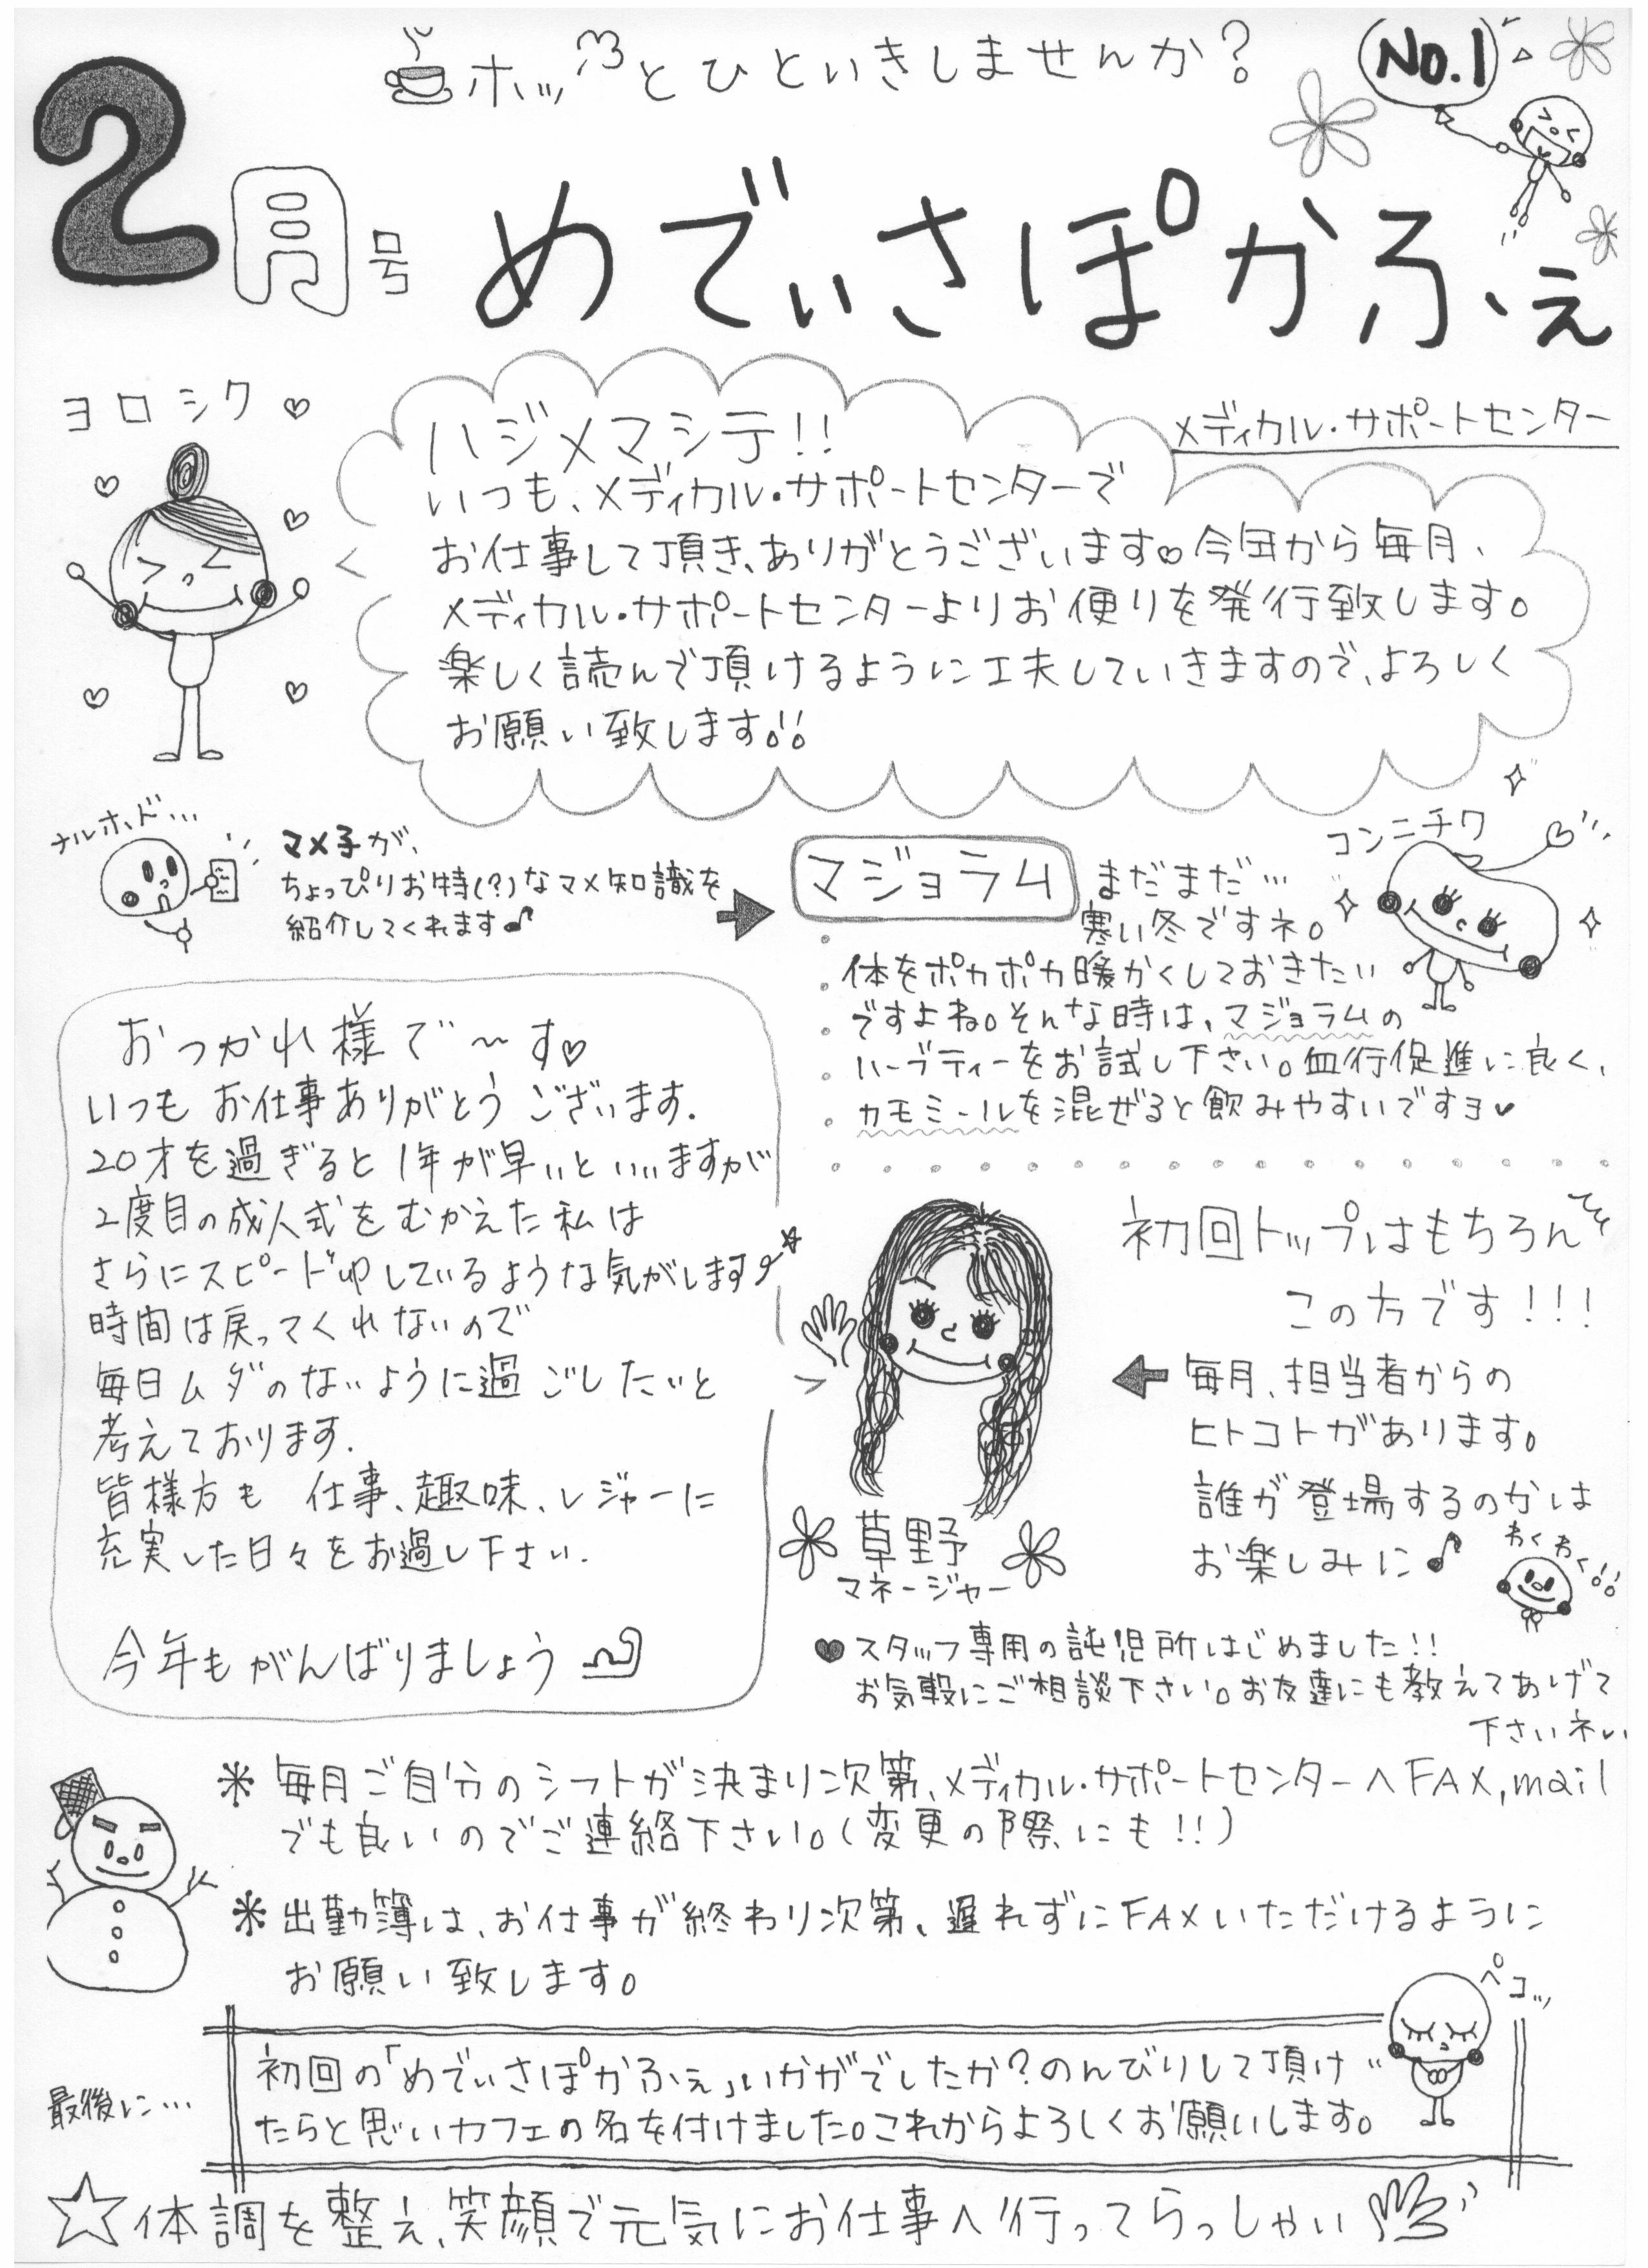 ホッとひといきしませんか?
No.1
2月号
めでぃさぽかふぇ
メディカル・サポートセンター
ヨロシク♡
ハジメマシテ!!
いつも、メディカル・サポートセンターで
お仕事して頂き、ありがとうございます♡今年から毎月、
メディカル・サポートセンターよりお便りを発行致します。
楽しく読んで頂けるように工夫していきますので、よろしく
お願い致します!!
ナルホド…
マメ子が、
ちょっぴりお特(?)なマメ知識を
紹介してくれます♪
コンニチワ
マジョラム
まだまだ…
寒い冬ですネ。
体をポカポカ暖かくしておきたい
ですよね。そんな時は、マジョラムの
ハーブティーをお試し下さい。血行促進に良く、
カモミールを混ぜると飲みやすいですヨ♥
おつかれ様で〜す♡
いつもお仕事ありがとうございます.
20才を過ぎると1年が早いといいますが
2度目の成人式をむかえた私は
さらにスピードupしているような気がします
時間は戻ってくれないので
毎日ムダのないように過ごしたいと
考えております.
皆様方も 仕事、趣味、レジャーに
充実した日々をお過し下さい.
今年もがんばりましょう
草野
マネージャー
初回トップはもちろん
この方です!!!
毎月、担当者からの
ヒトコトがあります。
誰が登場するのかは
お楽しみに♪
わくわく!!
♥スタッフ専用の託児所はじめました!!
お気軽にご相談下さい。お友達にも教えてあげて
下さいネ
＊毎月ご自分のシフトが決まり次第、メディカル・サポートセンターへFAX,mail
でも良いのでご連絡下さい。(変更の際にも!!)
＊出勤簿は、お仕事が終わり次第、遅れずにFAXいただけるように
お願い致します。
ペコッ
最後に…
初回の「めでぃさぽかふぇ」いかがでしたか?のんびりして頂け
たらと思いカフェの名を付けました。これからよろしくお願いします。
☆体調を整え、笑顔で元気にお仕事へ行ってらっしゃい